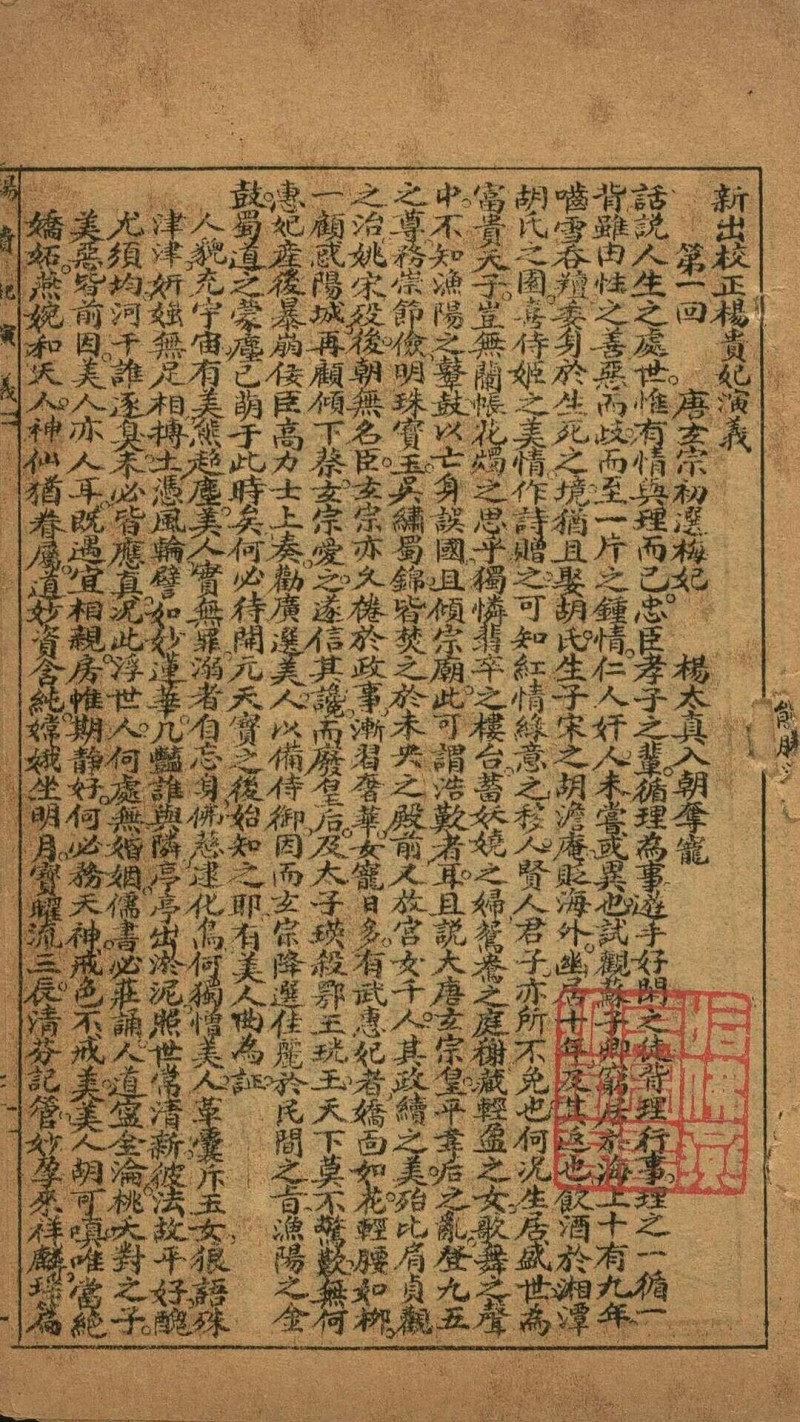 新出校正楊貴妃演義
第一回 唐玄宗初選梅妃 楊太真入朝奪寵
話說人生之處世。惟有情與理而已。忠臣孝子之輩。循理為事。遊手好閑之徒。背理行事。理之一循一
背雖由性之善惡而歧。而至一片之鍾情。仁人奸人。未嘗或異也。試觀蘇子卿窮居於海上十有九年
嚙雪吞羶。委身於生死之境。猶且娶胡氏。生子。宋之胡澹庵貶海外。幽居十年。及其返也。飲酒於湘潭
胡氏之園。喜侍姬之美情。作詩贈之。可知紅情綠意之移人。賢人君子亦所不免也。何況生居盛世為
富貴天子。豈無蘭帳花燭之思乎。獨憐翡翠之樓台。蓄妖嬈之婦。鴛鴦之庭榭。藏輕盈之女。歌舞之聲
中。不知漁陽之鼙鼓。以亡身誤國。且傾宗廟。此可謂浩歎者耳。且說大唐玄宗皇平韋后之亂。登九五
之尊。務崇節儉。明珠寶玉。吳繡蜀錦。皆焚之於未央之殿前。又放宮女千人。其政績之美。殆比肩貞觀
之治。姚宋歿後。朝無名臣。玄宗亦久倦於政事。漸習奢華。女寵日多。有武惠妃者。嬌面如花。輕腰如柳。
一顧惑陽城。再顧傾下蔡。玄宗愛之。遂信其讒。而廢皇后。及太子瑛。殺鄂王珖王。天下莫不驚歎。無何
惠妃產後暴崩。佞臣高力士上奏。勸廣選美人。以備侍御。因而玄宗降選佳麗於民間之旨。漁陽之金
鼓。蜀道之蒙塵。已萌于此時矣。何必待開元天寶之後始知之耶。有美人曲為証
人貌充宇宙。有美態超塵。美人實無罪。溺者自忘身。佛慈逮化烏。何獨憎美人。革囊斥玉女。狠語殊
津津。妍媸無足相。搏土憑風輪。譬如妙蓮華。凡豔誰與隣。亭亭出淤泥。照世常清新。彼法故平好醜
尤須均。河干誰逐臭。未必皆應真。況此浮世人。何處無婚姻。儒書必莊誦。人道寧全淪。桃夭對之子。
美惡皆前因。美人亦人耳。既遇宜相親。房帷期靜好。何必務天神。戒色不戒美。美人胡可嗔。唯當絕
嬌妬。燕婉和天人。神仙猶眷屬。道妙資含純。嫦娥坐明月。寶曜流三辰。清芬記管妙。孕來祥麟。瑤為
楊貴妃演義